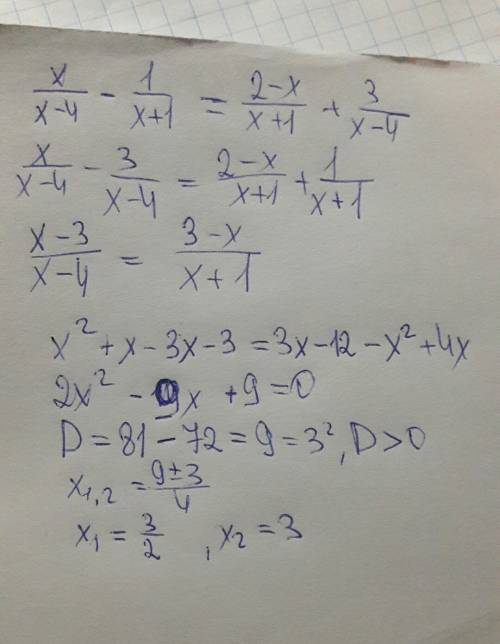 x/(x-4) - 1/(x+1) = (2-x)/(x+1) + 3/(x-4)
x/(x-4) - 3/(x-4) = (2-x)/(x+1) + 1/(x+1)
(x-3)/(x-4) = (3-x)/(x+1)
x² + x - 3x - 3 = 3x - 12 - x² + 4x
2x² - 9x + 9 = 0
D = 81 - 72 = 9 = 3², D > 0
x₁,₂ = (9±3)/4
x₁ = 3/2 , x₂ = 3